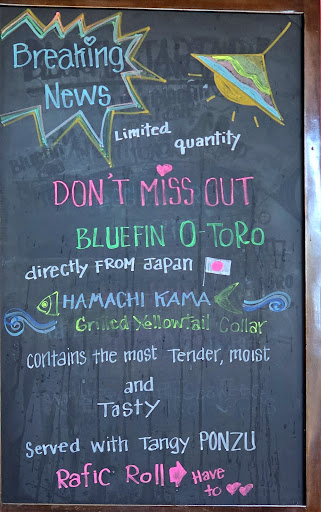 Breaking
News
Limited
quantity
DON'T MISS OUT
BLUEFIN O-TORO
directly FROM Japan
HAMACHI KAMA
Grilled Yellowtail Collar
contains the most Tender, moist
and
Tasty
Served with Tangy PONZU
Rafic Roll Have
to